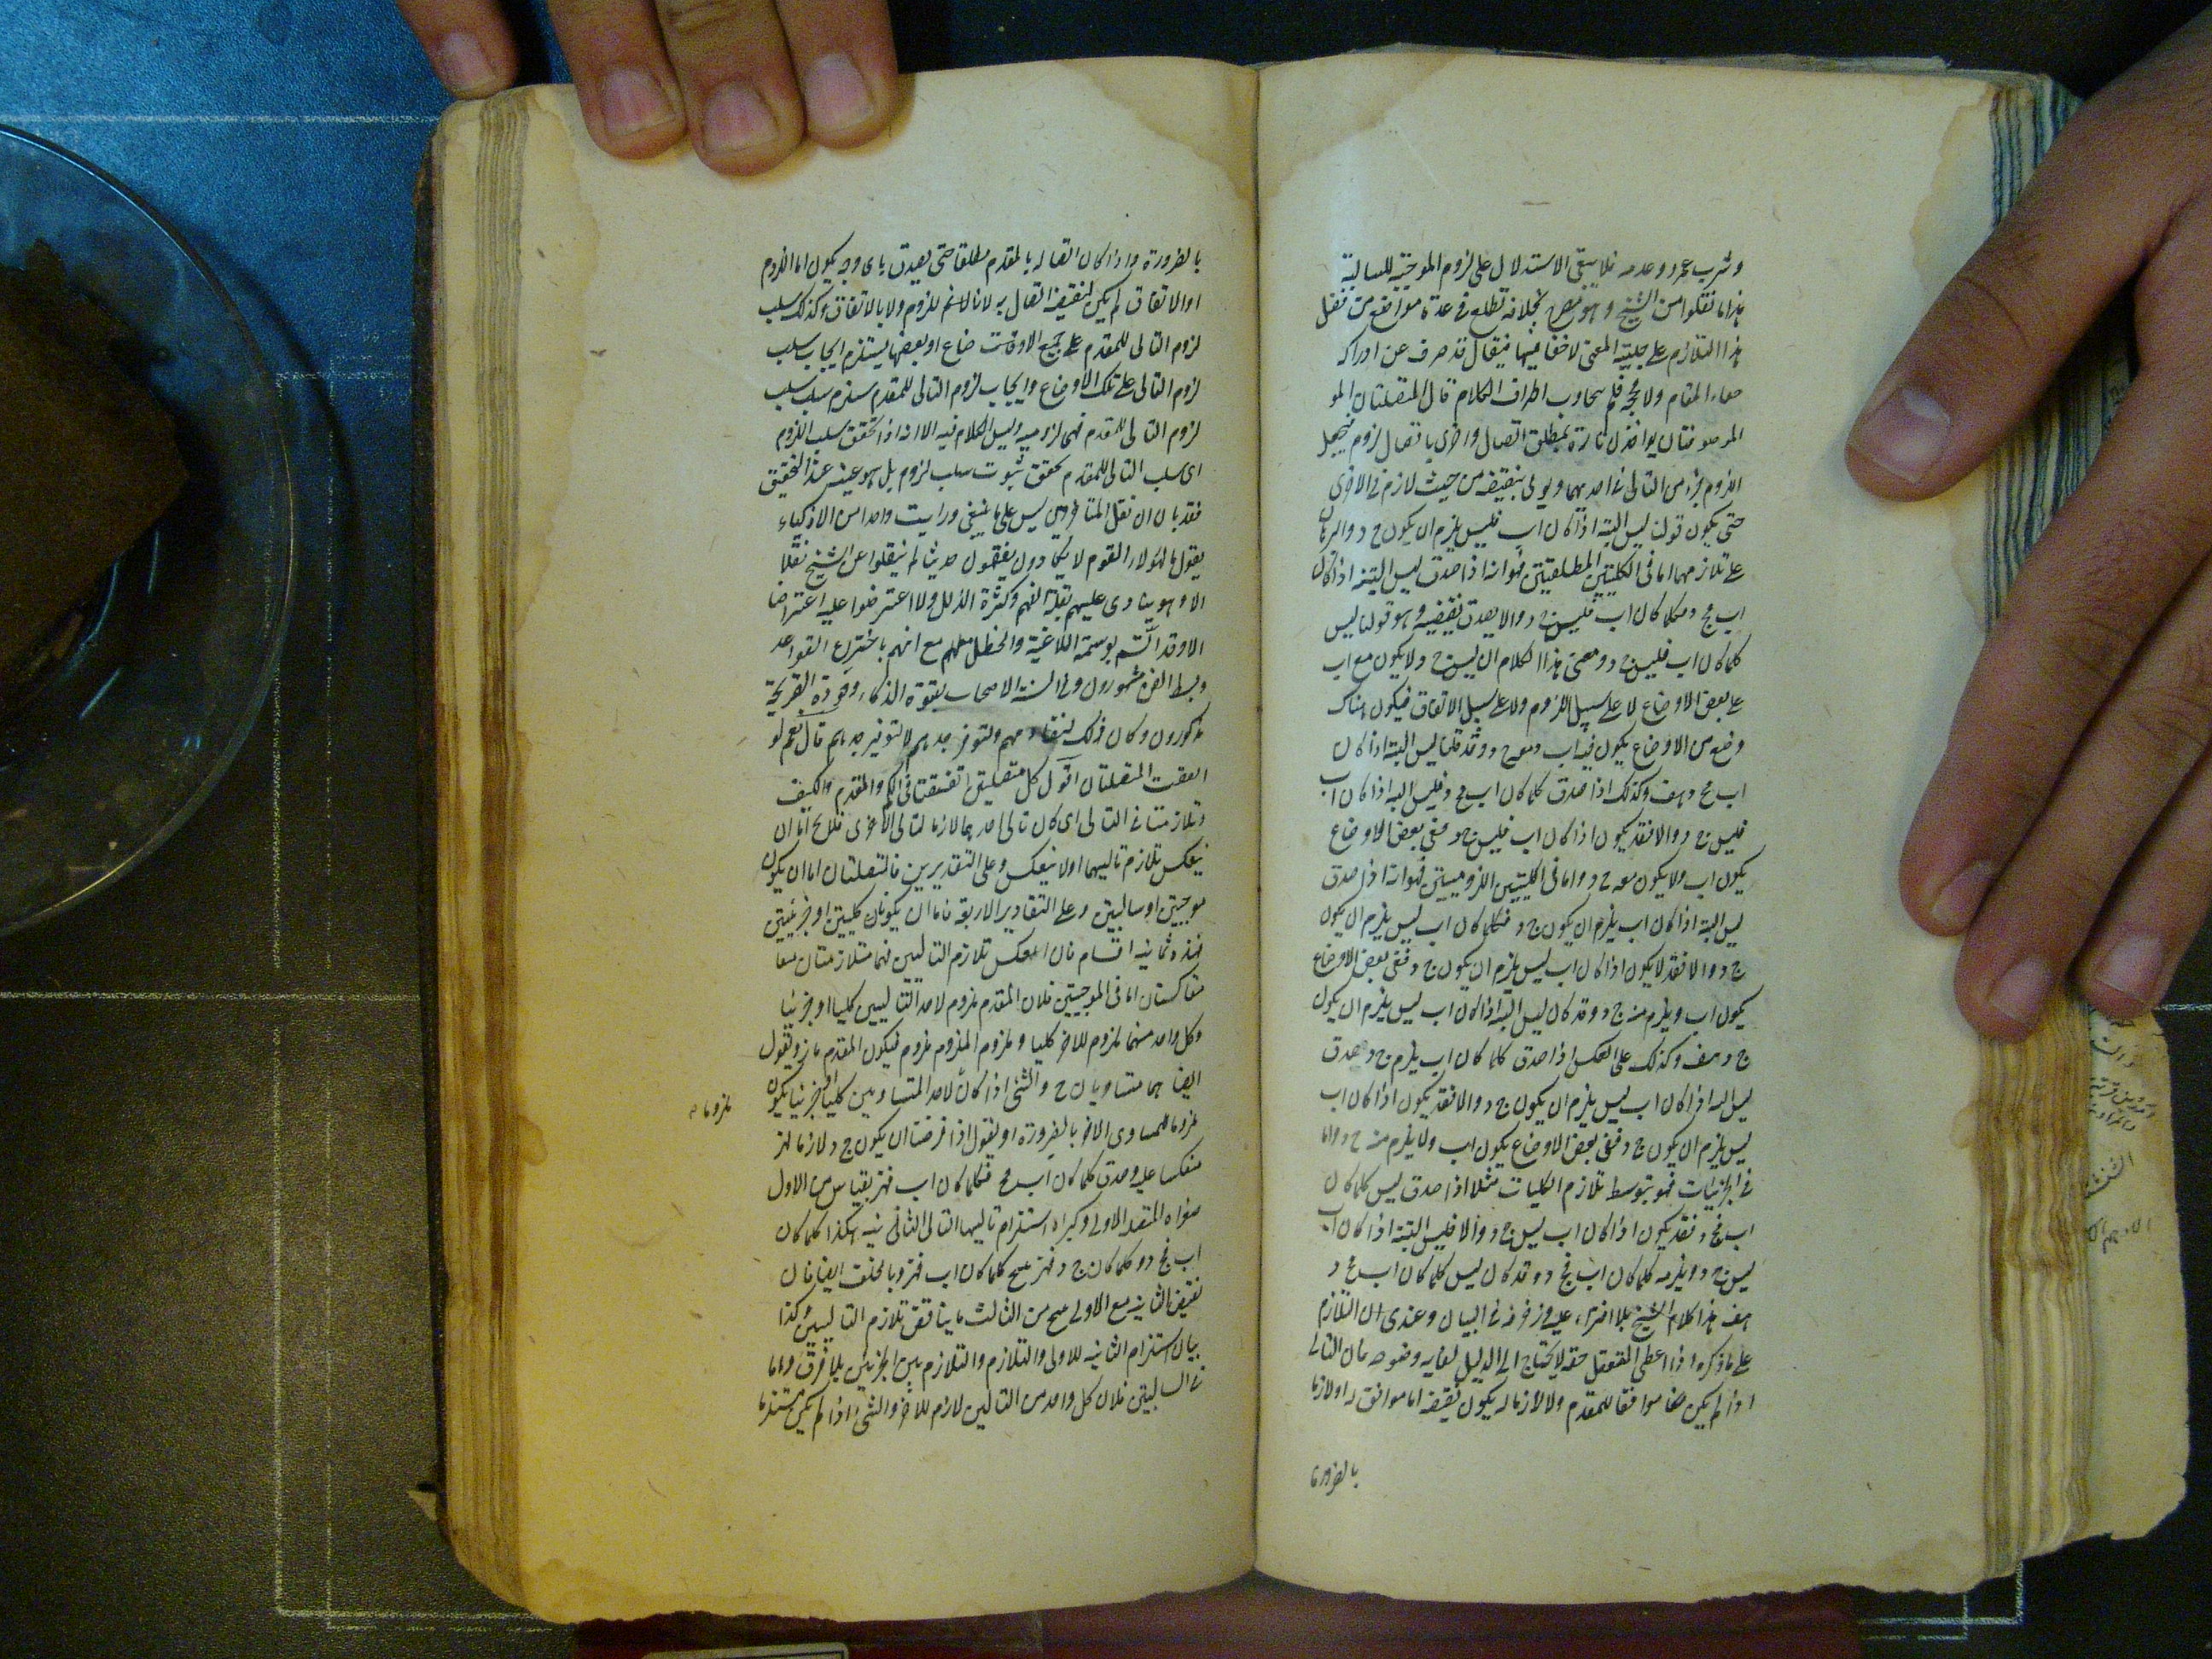 وشرب عمرو وعدمه فلا يبقى الاستدلال على لزوم الموجبة للسالبة
هذا ما نقلوا من الشيخ وهو مصرح بخلافه تطلع في عدة مواضع من نقل
هذا التلازم على جلية المعنى لا خفاء فيها فيقال قد صرف عن ادراكه
المقام ولا اطراف الكلام قال المتصلتان المو
الموصوفتان يواخذان تارة بمطلق اتصال واخرى باتصال لزوم فيجعل
اللزوم جزء من التالي في احديهما ويولى بنقيضه من حيث لازم في الاخرى
حتى يكون قولنا ليس البتة اذا كان اب فليس يلزم ان يكون ج د والبرهان
على تلازمهما اما في الكليتين المطلقتين فهو انه اذا صدق ليس البتة اذا كان
اب فج د فكلما كان اب فليس ج د والا يصدق نقيضه وهو قولنا ليس
كلما كان اب فليس ج د ومعنى هذا الكلام ان ليس ج د لا يكون مع اب
على بعض الاوضاع لا على سبيل اللزوم ولا على سبيل الاتفاق فيكون هناك
وضع من الاوضاع يكون فيه اب ومعه ج د وقد قلنا ليس البتة اذا كان
اب فج د هف وكذلك اذا صدق كلما كان اب فج د فليس البتة اذا كان اب
فليس ج د والا فقد يكون اذا كان اب فليس ج د ففي بعض الاوضاع
يكون اب ولا يكون معه ج د واما في الكليتين اللزوميتين فهو انه اذا صدق
ليس البتة اذا كان اب يلزم ان يكون ج د فكلما كان اب ليس يلزم ان يكون
ج د والا فقد لا يكون اذا كان اب ليس يلزم ان يكون ج د ففي بعض الاوضاع
يكون اب ويلزم منه ج د وقد كان ليس البتة اذا كان اب ليس يلزم ان يكون
ج د هف وكذلك على العكس اذا صدق كلما كان اب يلزم ج د صدق
ليس البتة اذا كان اب ليس يلزم ان يكون ج د والا فقد يكون اذا كان اب
ليس يلزم ان يكون ج د ففي بعض الاوضاع يكون اب ولا يلزم منه ج د واما
في الجزئيات فهو بتوسط تلازم الكليات مثلا اذا صدق ليس كلما كان
اب فج د فقد يكون اذا كان اب ليس ج د والا فليس البتة اذا كان اب
ليس ج د ويلزمه كلما كان اب فج د وقد كان ليس كلما كان اب فج د
هف هذا كلام الشيخ بلا افتراء عليه في البيان وعندي ان التلازم
على ما ذكره اذا اعطى التعقل حقه لا يحتاج الى الدليل لغاية وضوحه فان التالي
اذا لم يكن موافقا للمقدم ولا لازما له يكون نقيضه اما موافق له او لازما
بالضرورة
بالضرورة واذا كان اتصاله بالمقدم مطلقا حتى يصدق باى وجه يكون اما اللزوم
او الاتفاق لم يكن لنقيضه اتصال به لا باللزوم ولا بالاتفاق وكذلك سلب
لزوم التالي للمقدم على جميع الاوضاع او بعضها يستلزم ايجاب سلب
لزوم التالي على تلك الاوضاع وايجاب لزوم التالي للمقدم يستلزم سلب سلب
لزوم التالي للمقدم فهي لزومية وليس الكلام فيه الا انه اذا تحقق سلب اللزوم
اى سلب التالي للمقدم تحقق ثبوت سلب لزوم بل هو عينه عند التحقيق
فقد بان ان نقل المتاخرين ليس على ما ينبغي ورايت واحدا من الاذكياء
يقول ما لهؤلاء القوم لا يكادون يفقهون حديثا لم ينقلوا عن الشيخ نقلا
الا وهو ينادى عليهم بقلة الفهم وكثرة الزلل ولا اعترضوا عليه اعتراضا
الا وقد اتسم بوسمة مع انهم باختراع القواعد
وبسط الفن مشهورون وفي السنة الاصحاب بقوة الذكاء وجودة القريحة
مذكورون وكان ذلك قال نعم لو
اتفقت المتصلتان اقول كل متصلتين اتفقتا في الكم والمقدم والكيف
وتلازمتا في التالي اى كان تالي احديهما لازما لتالي الاخرى فلا يخ اما ان
ينعكس تلازم تاليهما او لا ينعكس وعلى التقديرين فالمتصلتان اما ان يكونا
موجبتين او سالبتين وعلى التقادير الاربعة فاما ان يكونا كليتين او جزئيتين
فهذه ثمانية اقسام فان انعكس تلازم التاليين فهما متلازمتان
متعاكستان اما في الموجبتين فلان المقدم ملزوم لاحد التاليين كليا او جزئيا
وكل واحد منهما ملزوم للاخر كليا وملزوم الملزوم ملزوم فيكون المقدم ونقول
ايضا هما متساويان ح والشئ اذا كان لاحد المتساويين كليا او جزئيا يكون
ملزوما
ملزوما للمساوى الاخر بالضرورة او نقول اذا فرضنا ان يكون ج د لازما
منعكسا عليه وصدق كلما كان اب فج د فكلما كان اب فهز بقياس من الاول
صغراه المتصلة الاولى وكبراه استلزام تاليها التالي الثاني هكذا كلما كان
اب فج د وكلما كان ج د فهز ينتج كلما كان اب فهز وبالخلف ايضا فان
نقيض الثانية مع الاولى ينتج من الثالث ما يناقض تلازم التاليين وكذا
بيان استلزام الثانية للاولى والتلازم بين الجزئيتين بلا فرق واما
في السالبتين فلان كل واحد من التاليين لازم للاخر والشئ اذا لم يكن مستلزما